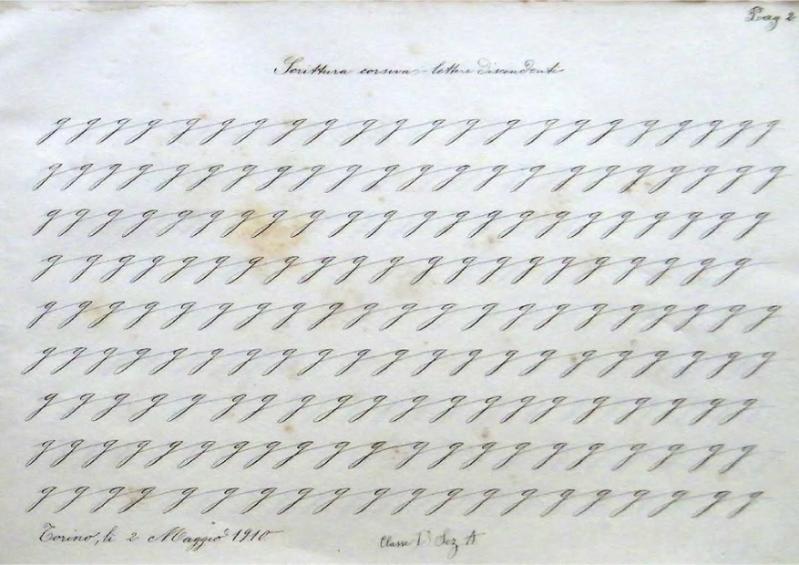 Pag 2
Scrittura corsiva - lettere discendenti
g g g g g g g g g g g g g g g g g g g g g g g g
g g g g g g g g g g g g g g g g g g g g g g g
g g g g g g g g g g g g g g g g g g g g g g g
g g g g g g g g g g g g g g g g g g g g g g g
g g g g g g g g g g g g g g g g g g g g g g g
g g g g g g g g g g g g g g g g g g g g g g g
g g g g g g g g g g g g g g g g g g g g g g g
g g g g g g g g g g g g g g g g g g g g g g g g
g g g g g g g g g g g g g g g g g g g g g g g
Torino, li 2 Maggio 1910
Classe 1ª Sez A